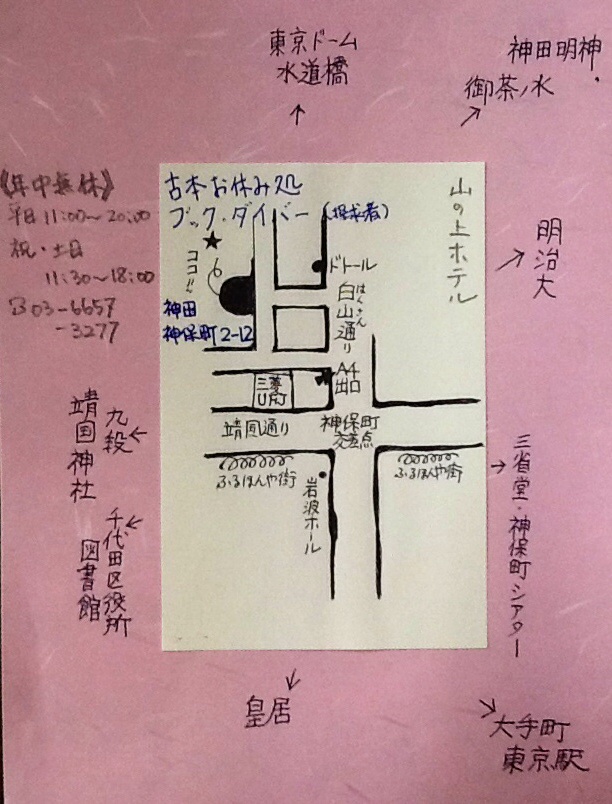 東京ドーム
水道橋
↑
神田明神.
御茶ノ水
↗
《年中無休》
平日 11:00〜20:00
祝・土日
11:30〜18:00
☎03-6657
-3277
古本お休み処
ブック・ダイバー(探求者)
★
ココ!!
神田
神保町2-12
ドトール
白山通り
はくさん
山の上ホテル
↗ 明治大
A4
出口
三菱
UFJ
靖国通り
神保町
交差点
ふるほんや街
ふるほんや街
岩波ホール
九段←
靖国神社
千代田区役所←
図書館
→三省堂・神保町シアター
↙
皇居
↘
大手町
東京駅